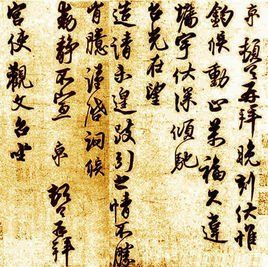 京頓首再拜晚刻伏惟
鈞候動止萬福久違
墻宇伏深傾馳
台光在望
造請未遑跂引之情不勝
胸臆謹啟詢候
動靜不宣 京 頓首再拜
宮使觀文台坐